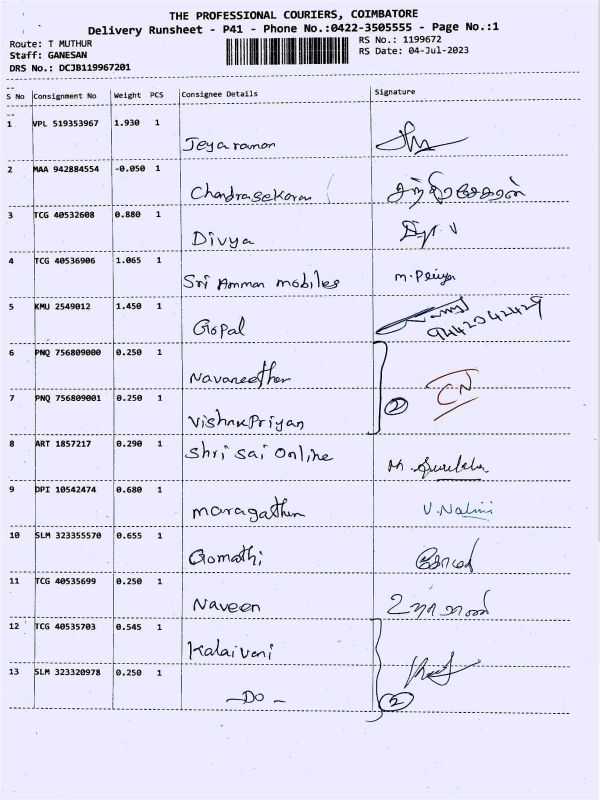 THE PROFESSIONAL COURIERS, COIMBATORE
Delivery Runsheet - P41 - Phone No.:0422-3505555 - Page No.:1
Route: T MUTHUR RS No.: 1199672
Staff: GANESAN RS Date: 04-Jul-2023
DRS No.: DCJB119967201
S No Consignment No Weight PCS Consignee Details Signature
1 VPL 519353967 1.930 1
Jeyaraman
2 MAA 942884554 -0.050 1
Chandrasekaran சந்திரசேகரன்
3 TCG 40532608 0.880 1
Divya
4 TCG 40536906 1.065 1
Sri Amman mobiles M. Priya
5 KMU 2549012 1.450 1
Gopal 9442342429
6 PNQ 756809000 0.250 1
Navaneethan
7 PNQ 756809001 0.250 1 2 CN
Vishnupriyan
8 ART 1857217 0.290 1
Shri Sai Online
9 DPI 10542474 0.680 1
Maragatham V. Nalini
10 SLM 323355570 0.655 1
Gomathi கோமதி
11 TCG 40535699 0.250 1
Naveen
12 TCG 40535703 0.545 1
Kalaivani
13 SLM 323320978 0.250 1
-Do- 2